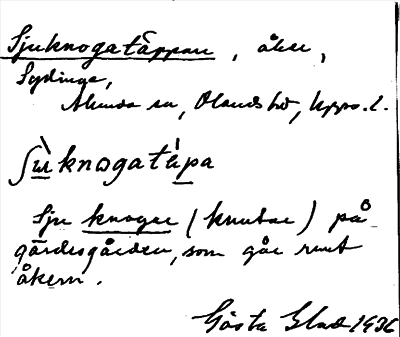 Sjuknogatäppan, åker,
Sydinge,
Alunda sn, Olands hd, Upps. l.
ʃùknogatɛ́pa
Sju knogar (knutar) på
gärdesgården, som går runt
åkern.
Gösta Glad 1936